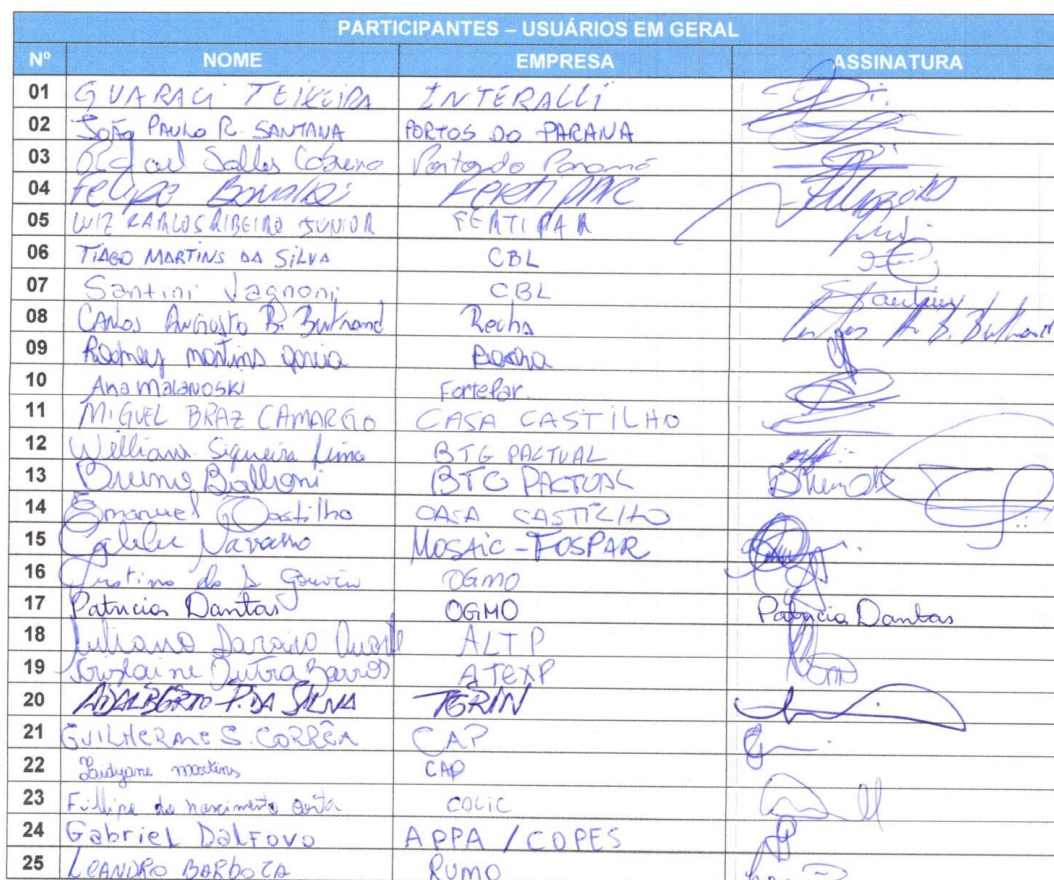 PARTICIPANTES – USUÁRIOS EM GERAL
Nº NOME EMPRESA ASSINATURA
01 GUARACI TEIXEIRA INTERALLI
02 João PAULO R. SANTANA PORTOS DO PARANA
03 Salles
04 Felipe FERTIPAR
05 LUIZ CARLOS RIBEIRO JUNIOR FERTIPAR
06 TIAGO MARTINS DA SILVA CBL
07 Santini Vagnoni CBL
08 CARLOS AUGUSTO B. Butrand Rocha
09 Rodney martins
10 Ana Malanoski Fortepar.
11 MIGUEL BRAZ CAMARGO CASA CASTILHO
12 William Siqueira Lima BTG PACTUAL
13 Bruno Balloni BTG PACTUAL
14 Emanuel Castilho CASA CASTILHO
15 Navarro MOSAIC - FOSPAR
16 OGMO
17 Patricia Dantas OGMO Patricia Dantas
18 Juliano ALTP
19 Dutra Barros ATEXP
20 ADALBERTO P. DA SILVA TERIN
21 GUILHERME S. CORRÊA CAP
22 martins CAP
23 Fillipe do nascimento COLIC
24 Gabriel Dalfovo APPA / COPES
25 LEANDRO BARBOZA RUMO